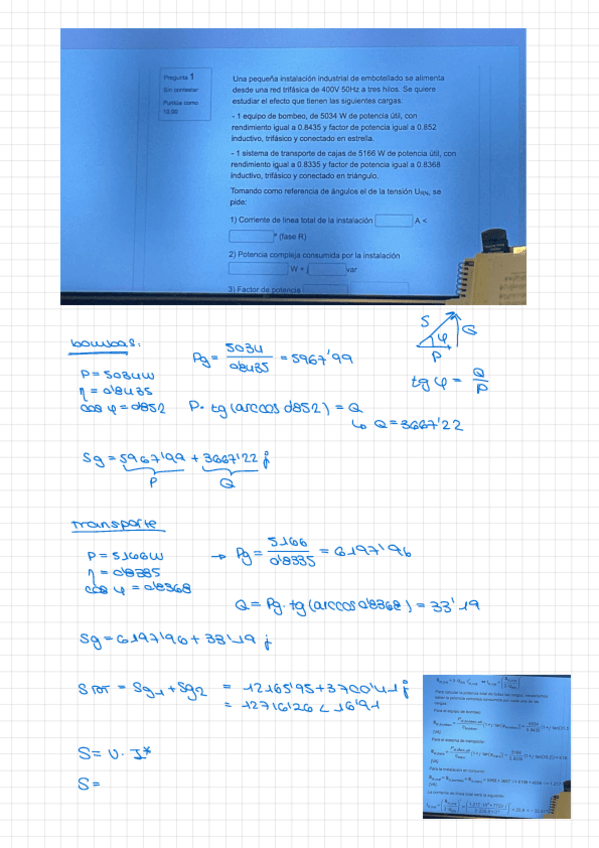 Pregunta 1
Sin contestar
Puntúa como
10,00
Una pequeña instalación industrial de embotellado se alimenta
desde una red trifásica de 400V 50Hz a tres hilos. Se quiere
estudiar el efecto que tienen las siguientes cargas:
- 1 equipo de bombeo, de 5034 W de potencia útil, con
rendimiento igual a 0.8435 y factor de potencia igual a 0.852
inductivo, trifásico y conectado en estrella.
- 1 sistema de transporte de cajas de 5166 W de potencia útil, con
rendimiento igual a 0.8335 y factor de potencia igual a 0.8368
inductivo, trifásico y conectado en triángulo.
Tomando como referencia de ángulos el de la tensión URN, se
pide:
1) Corriente de línea total de la instalación A <
° (fase R)
2) Potencia compleja consumida por la instalación
W + j var
3) Factor de potencia
bombas:
P = 5034W
η = 0'8435
cos φ = 0'852
Pg = 5034 / 0'8435 = 5967'99
P· tg (arccos 0'852) = Q
↳ Q = 3667'22
S φ Q P
tg φ = Q / P
Sg = 5967'99 + 3667'22 j
P Q
transporte
P = 5166W
η = 0'8335
cos φ = 0'8368
→ Pg = 5166 / 0'8335 = 6197'96
Q = Pg· tg (arccos 0'8368) = 33'19
Sg = 6197'96 + 33'19 j
STOT = Sg1 + Sg2 = 12165'95 + 3700'41 j
= 12716'26 < 16'91
S = U · I*
S =
Para el equipo de bombeo:
Para el sistema de transporte:
Para la instalación en conjunto: